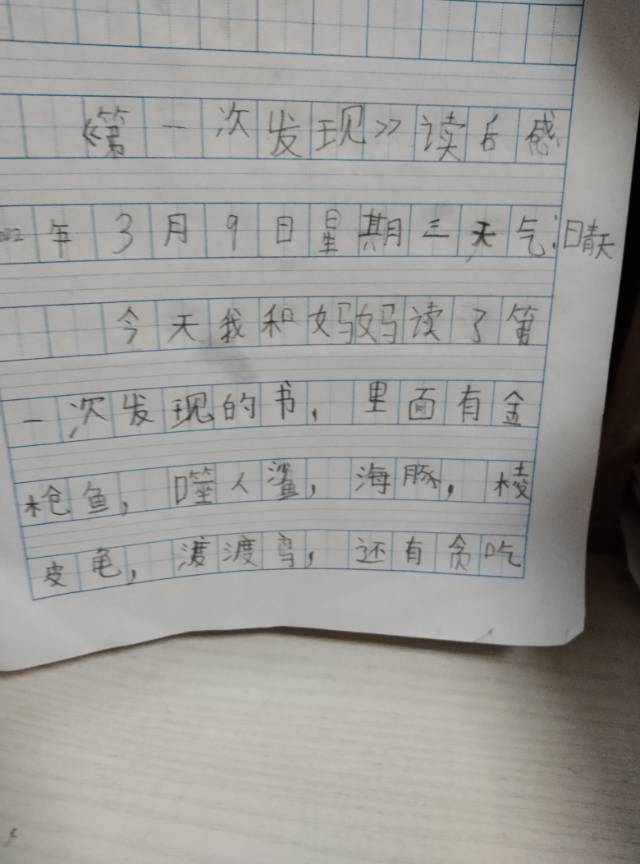 《第一次发现》读后感
年3月9日星期三天气:晴天
今天我和妈妈读了第
一次发现的书，里面有金
枪鱼，噬人鲨，海豚，棱
皮龟，渡渡鸟，还有贪吃